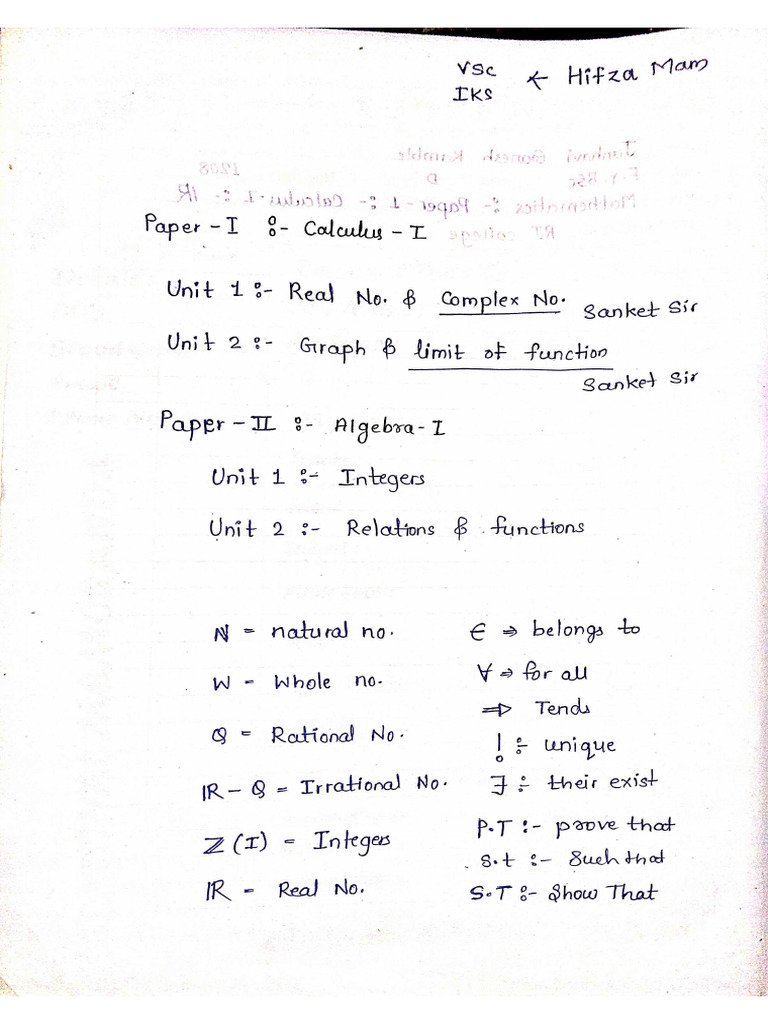 VSc
IKS ← Hifza Mam
Paper - I :- Calculus - I
Unit 1 :- Real No. & Complex No. Sanket Sir
Unit 2 :- Graph & limit of function
Sanket Sir
Paper - II :- Algebra - I
Unit 1 :- Integers
Unit 2 :- Relations & functions
N = natural no. ∈ ⇒ belongs to
W = Whole no. ∀ ⇒ for all
⇒ Tends
Q = Rational No. ! :- unique
IR - Q = Irrational No. ∃ :- their exist
Z (I) = Integers P.T :- prove that
S.t :- Such that
IR = Real No. S.T :- Show That